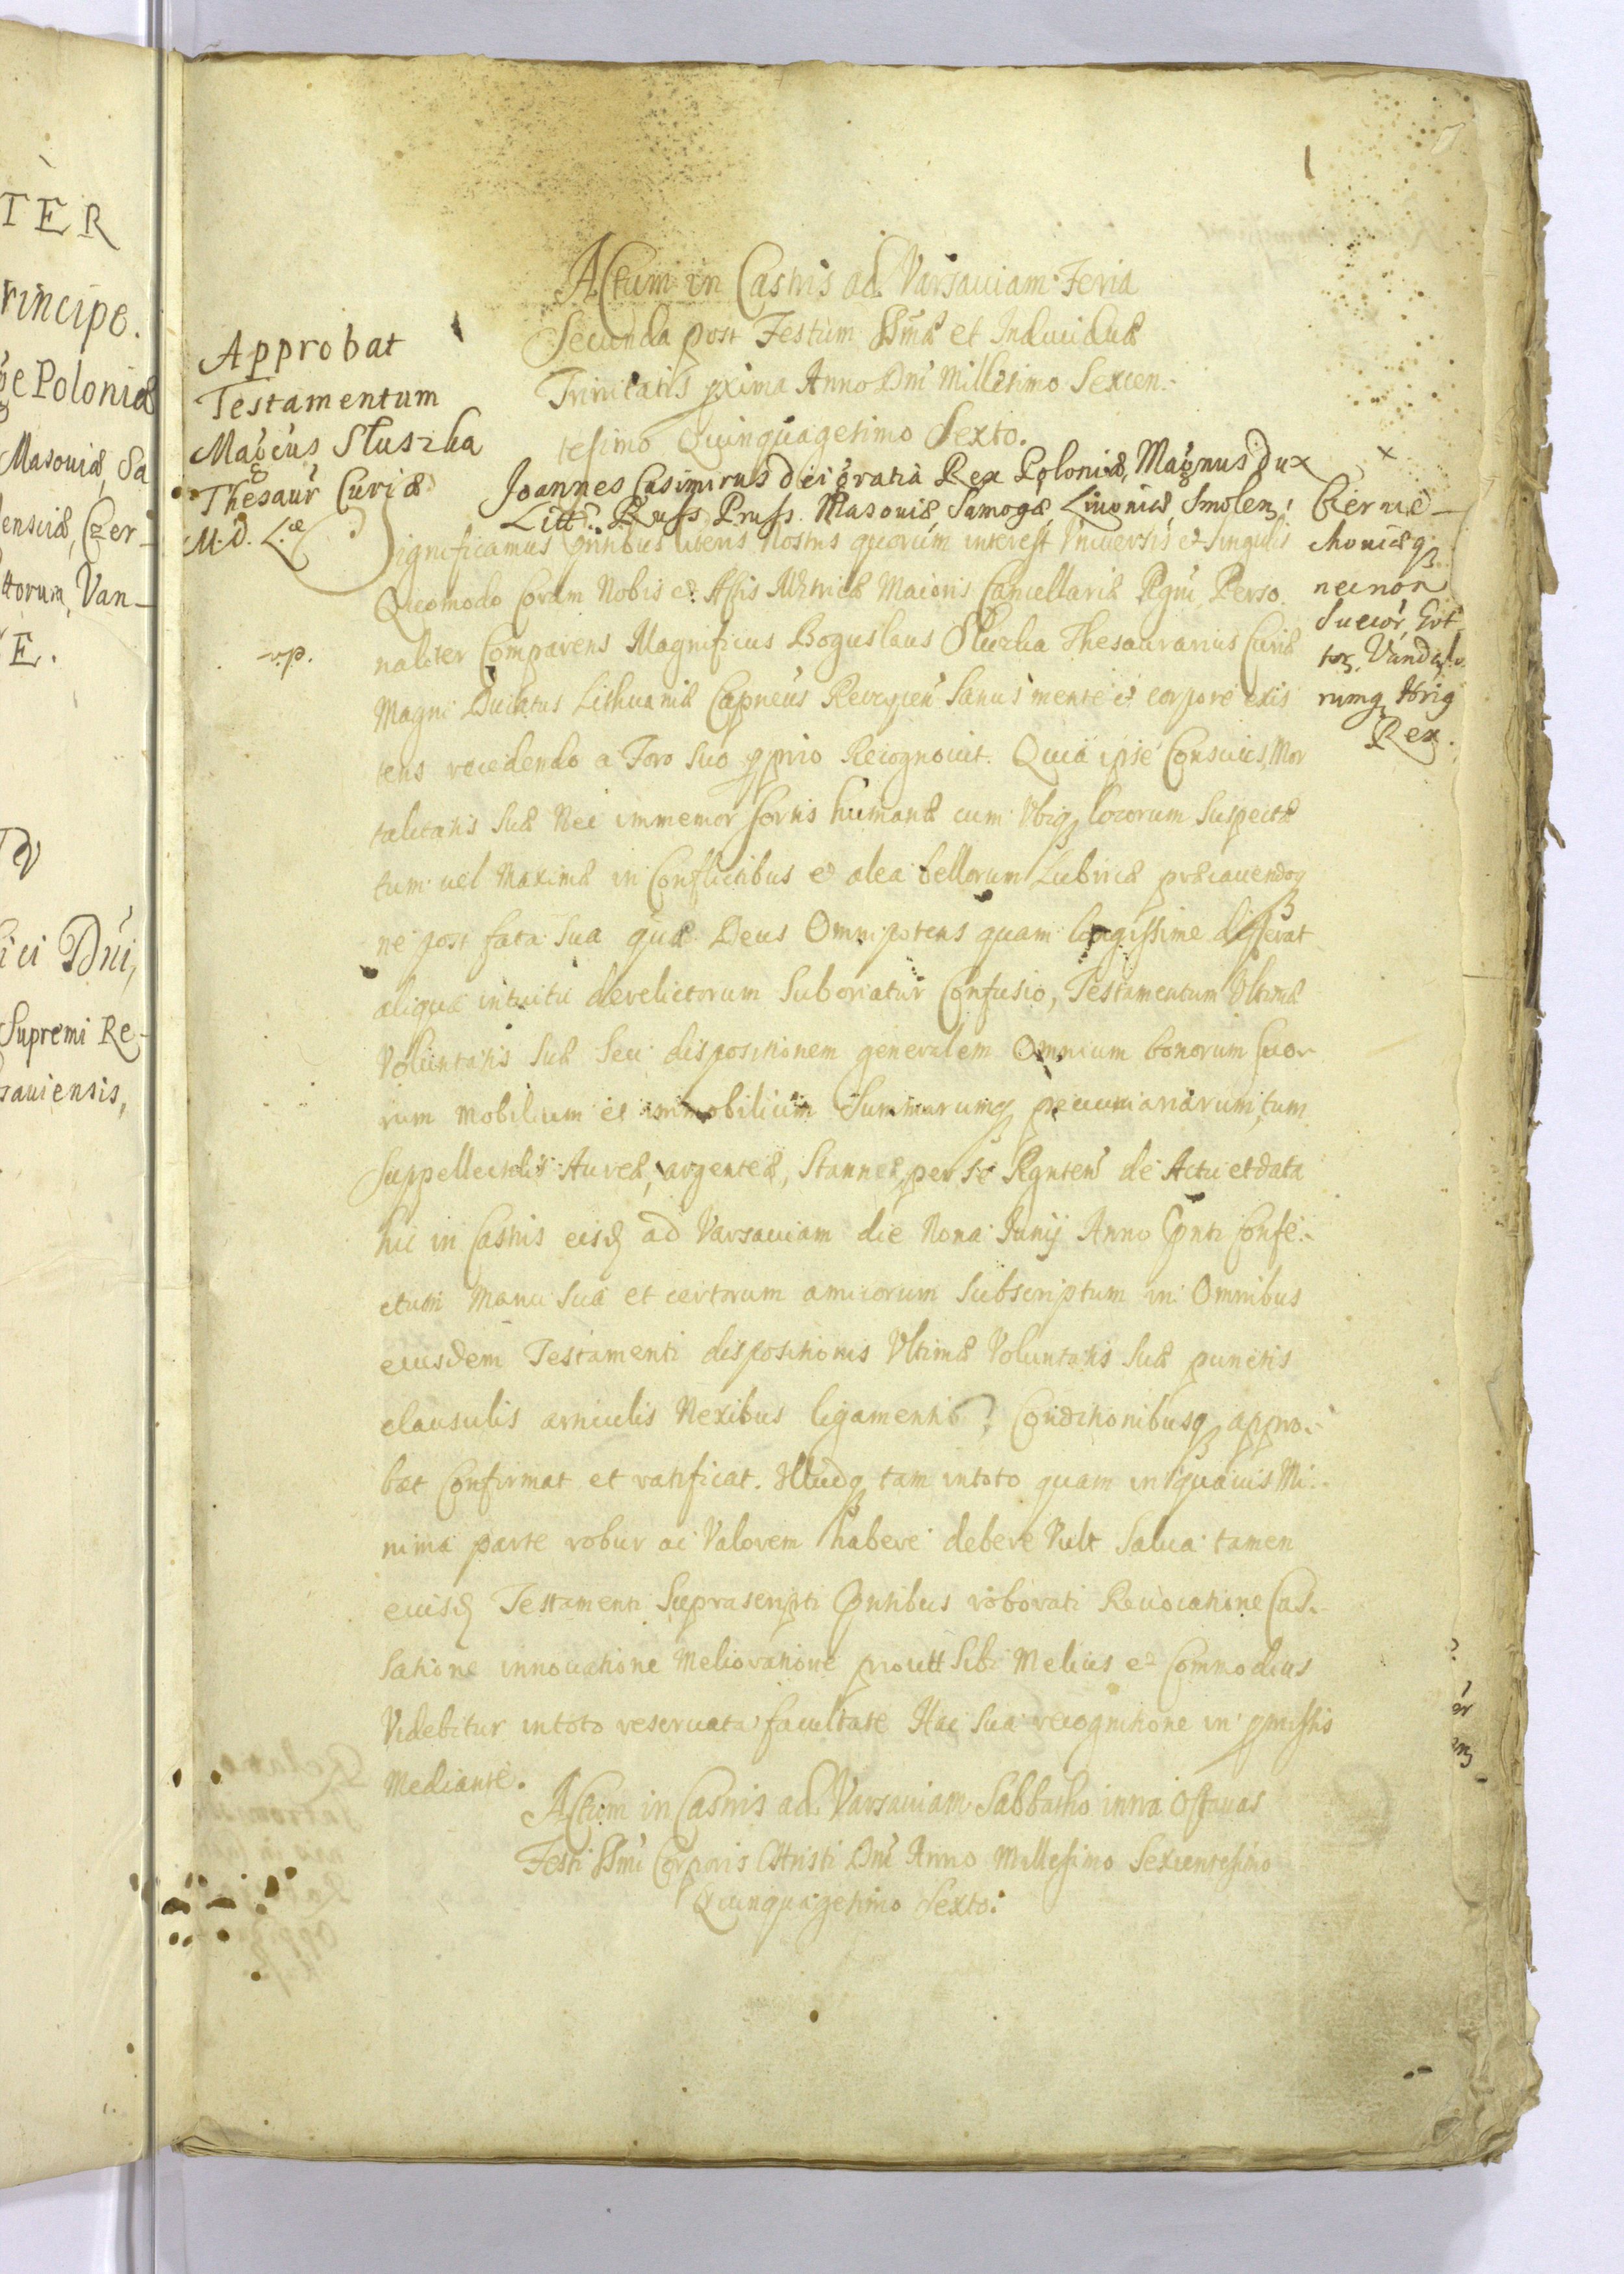 TER
rincipe.
ge Poloniæ
Masouiæ, Sa
ensciæ, Czer-
ttorum, Van-
E.
ici Dni,
Supremi Re-
sauiensis,
1
Approbat
Testamentum
Magcus Słuszka
Thesaur Curiæ
M.D.L.æ
ACtum in Castris ad Varsauiam Feria
Secunda post Festum SSmæ et Indiuiduæ
Trinitatis pxima Anno Dni Millesimo Sexcen-
tesimo Quinquagesimo Sexto.
Joannes Casimirus Dei gratia Rex Poloniæ, Magnus Dux
Litt. Russ Pruss. Masouiæ Samogæ, Liuoniæ, Smolen,
Czernie-
chouiæq
necnon
Suecor, Got
tor, Vandalo
rumq Hærig
Rex.
Significamus pntibus literis Nostris quorum interest Vniuersis et Singulis
Quomodo Coram Nobis et Actis Metricæ Maioris Cancellariæ Regni Perso
naliter Comparens Magnificus Boguslaus Sluzka Thesaurarius Curiæ
Magni Ducatus Lithuaniæ Capneus Sanus mente et corpore exis
tens recedendo a Foro Suo pprio Recognouit. Quia ipse Conscius Mor
talitatis Suæ Nec immemor sortis humanæ cum Vbiq locorum Suspectæ
tum uel Maximæ in Conflictibus et alea bellorum Lubricæ præcauendoq
ne post fata Sua quæ Deus Omnipotens quam longissime differat
aliqua intuitu derelictorum Suboriatur Confusio, Testamentum Vltimæ
Voluntatis Suæ Seu dispositionem generalem Omnium bonorum suor
rum Mobilium et immobilium Summarumq pecuniariarum, tum
Suppellectilis Aureæ, argenteæ, Stanneæ, per Se Rgnten de Actu et data
hic in Castris eisd ad Varsauiam die Nona Junij Anno Pnti Confe-
ctum Manu Sua et certorum amicorum Subscriptum in Omnibus
eiusdem Testamenti dispositionis Vltimæ Voluntatis Suæ punctis
clausulis articulis Nexibus ligamentis Conditionibusq appro-
bat Confirmat et ratificat. Illudq tam in toto quam in quauis Mi-
nima parte robur ac Valorem habere debere Vult Salua tamen
eiusd Testamenti Suprascripti Pntibus roborati Reuocatione Cas-
satione innouatione Melioratione proutt Sibi Melius et Commodius
Videbitur in toto reseruata facultate Hac Sua recognitione in pmissis
Mediante.
ACtum in Castris ad Varsauiam Sabbatho intra Octauas
Festi SSmi Corporis Christi Dni Anno Millesimo Sexcentesimo
Quinquagesimo Sexto.